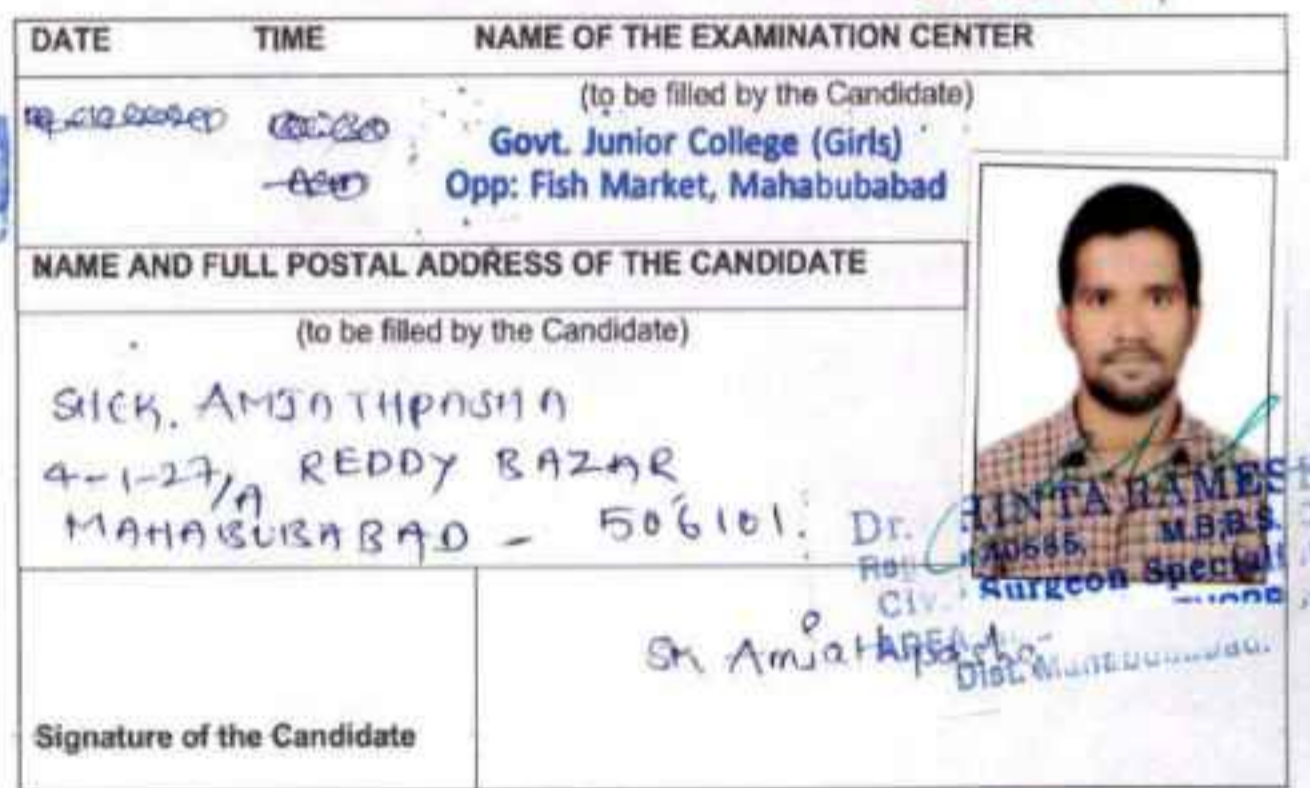 DATE TIME NAME OF THE EXAMINATION CENTER
(to be filled by the Candidate)
Govt. Junior College (Girls)
Opp: Fish Market, Mahabubabad
NAME AND FULL POSTAL ADDRESS OF THE CANDIDATE
(to be filled by the Candidate)
SHEK. AMJATHPASHA
4-1-27/A REDDY BAZAR
MAHABUBABAD - 506101.
Dr. HINTA RAMES
M.B.B.S.
Surgeon
Sk Amjathpasha
Dist.
Signature of the Candidate